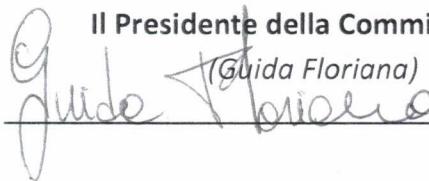 Il Presidente della Commi
(Guida Floriana)
Guida Floriana